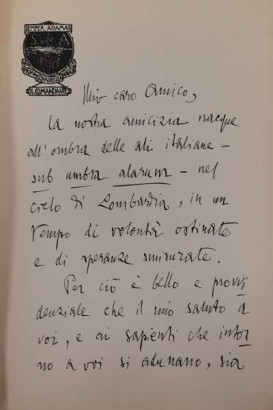 SEMPER ADAMAS
IL COMANDANTE
Mio caro Amico,
la nostra amicizia nacque
all'ombra delle ali italiane –
sub umbra alarum – nel
cielo di Lombardia, in un
tempo di volontà ostinate
e di speranze smisurate.
Per ciò è bello e provvi
denziale che il mio saluto a
voi, e ai sapienti che intor
no a voi si adunano, sia